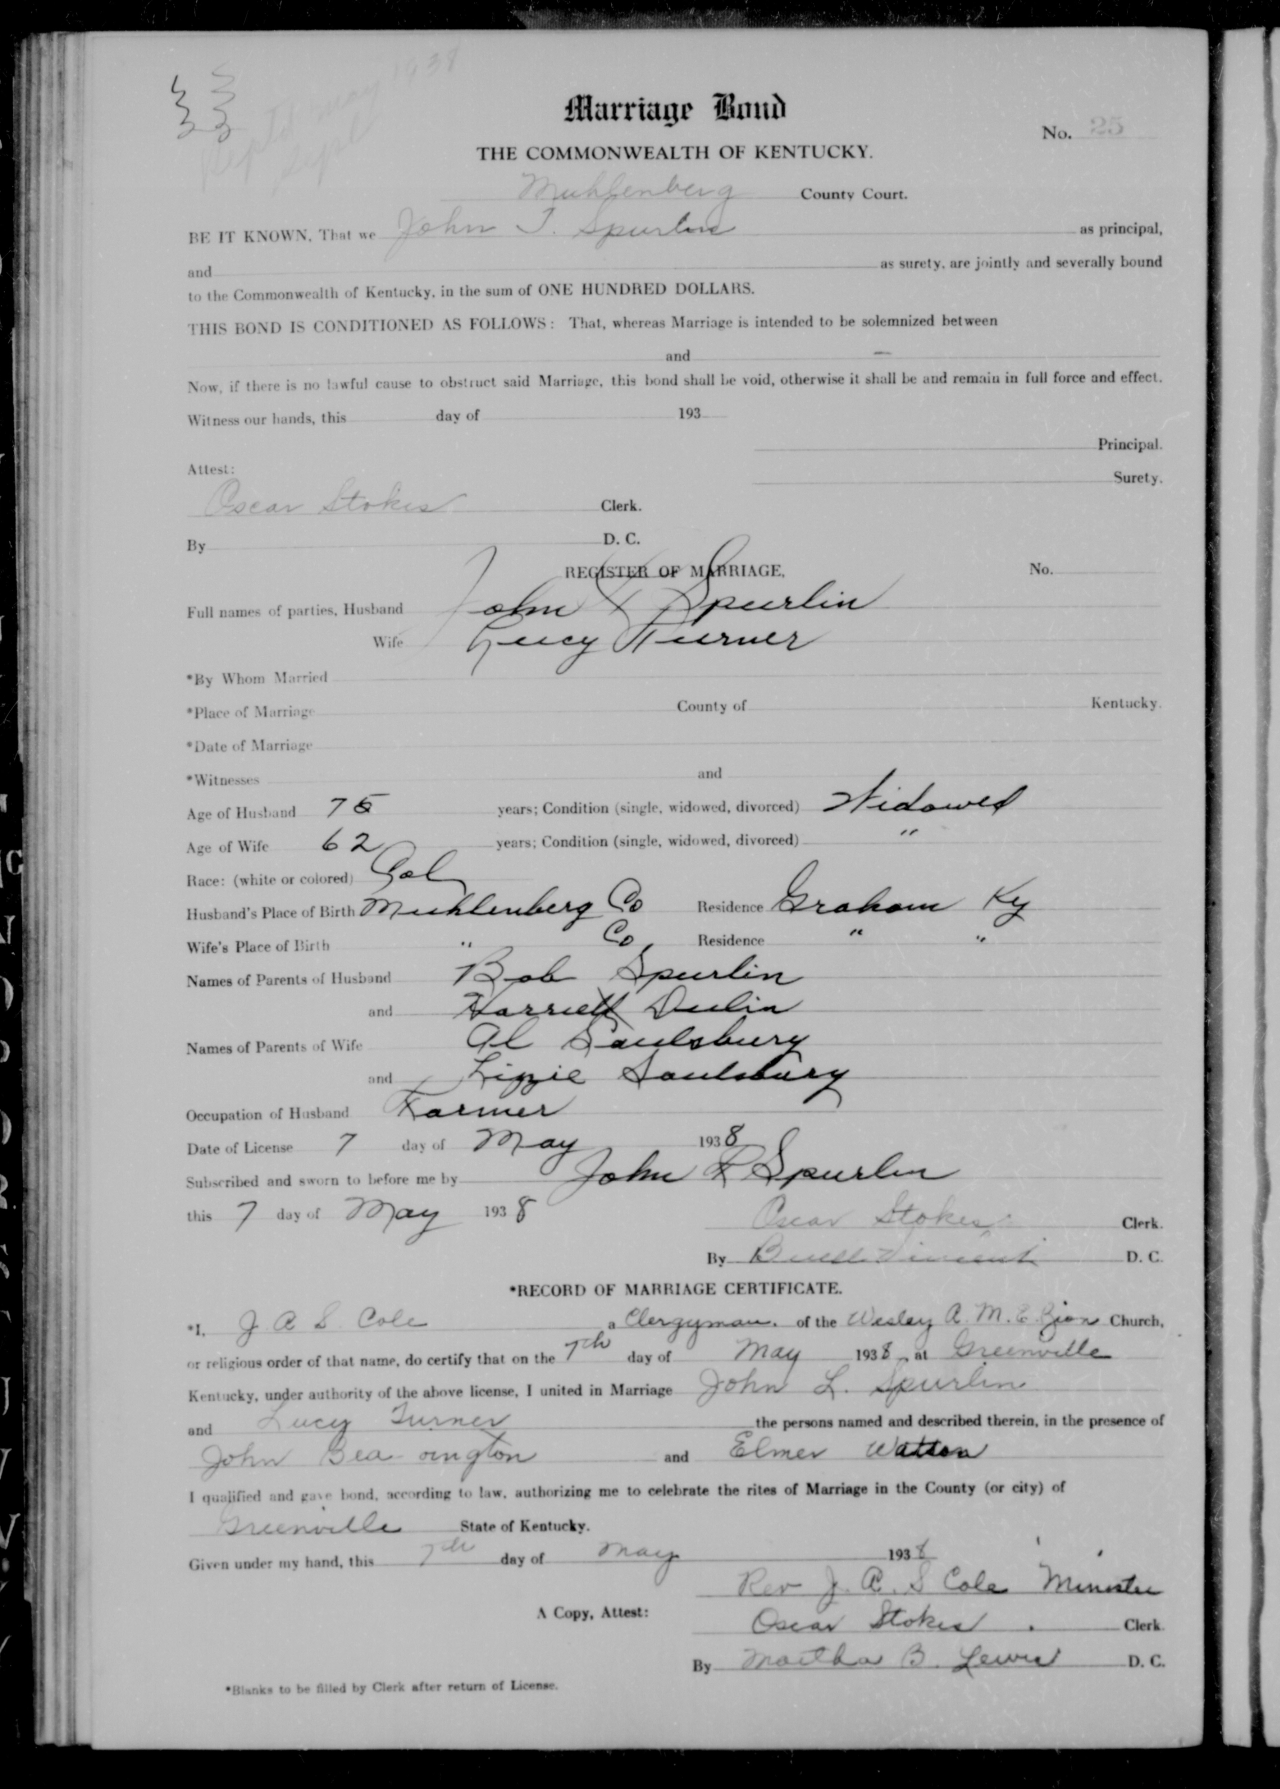 33
Marriage Bond
No. 25
THE COMMONWEALTH OF KENTUCKY.
Muhlenberg County Court.
BE IT KNOWN, That we John T. Spurlin as principal,
and as surety, are jointly and severally bound
to the Commonwealth of Kentucky, in the sum of ONE HUNDRED DOLLARS.
THIS BOND IS CONDITIONED AS FOLLOWS: That, whereas Marriage is intended to be solemnized between
and —
Now, if there is no lawful cause to obstruct said Marriage, this bond shall be void, otherwise it shall be and remain in full force and effect.
Witness our hands, this day of 193
Principal.
Attest:
Surety.
Oscar Stokes Clerk.
By D. C.
REGISTER OF MARRIAGE, No.
Full names of parties, Husband John Spurlin
Wife Lucy Turner
*By Whom Married
*Place of Marriage County of Kentucky.
*Date of Marriage
*Witnesses and
Age of Husband 75 years; Condition (single, widowed, divorced) Widowed
Age of Wife 62 years; Condition (single, widowed, divorced) "
Race: (white or colored) Col
Husband's Place of Birth Muhlenberg Co Residence Graham Ky
Wife's Place of Birth " Co, Residence " "
Names of Parents of Husband Bob Spurlin
and Harriett Dulin
Names of Parents of Wife Al Saulsbury
and Lizzie Saulsbury
Occupation of Husband Farmer
Date of License 7 day of May 1938
Subscribed and sworn to before me by John Spurlin
this 7 day of May 1938
Oscar Stokes Clerk.
By Vincent D. C.
*RECORD OF MARRIAGE CERTIFICATE.
*I, J A S Cole a Clergyman. of the Wesley A. M. E. Zion Church,
or religious order of that name, do certify that on the 7th day of May 1938, at Greenville
Kentucky, under authority of the above license, I united in Marriage John L. Spurlin
and Lucy Turner the persons named and described therein, in the presence of
John and Elmer Watson
I qualified and gave bond, according to law, authorizing me to celebrate the rites of Marriage in the County (or city) of
Greenville State of Kentucky.
Given under my hand, this 7th day of May 1938
Rev J. A. S Cole Minister
A Copy, Attest: Oscar Stokes Clerk.
By Martha B. Lewis D. C.
*Blanks to be filled by Clerk after return of License.